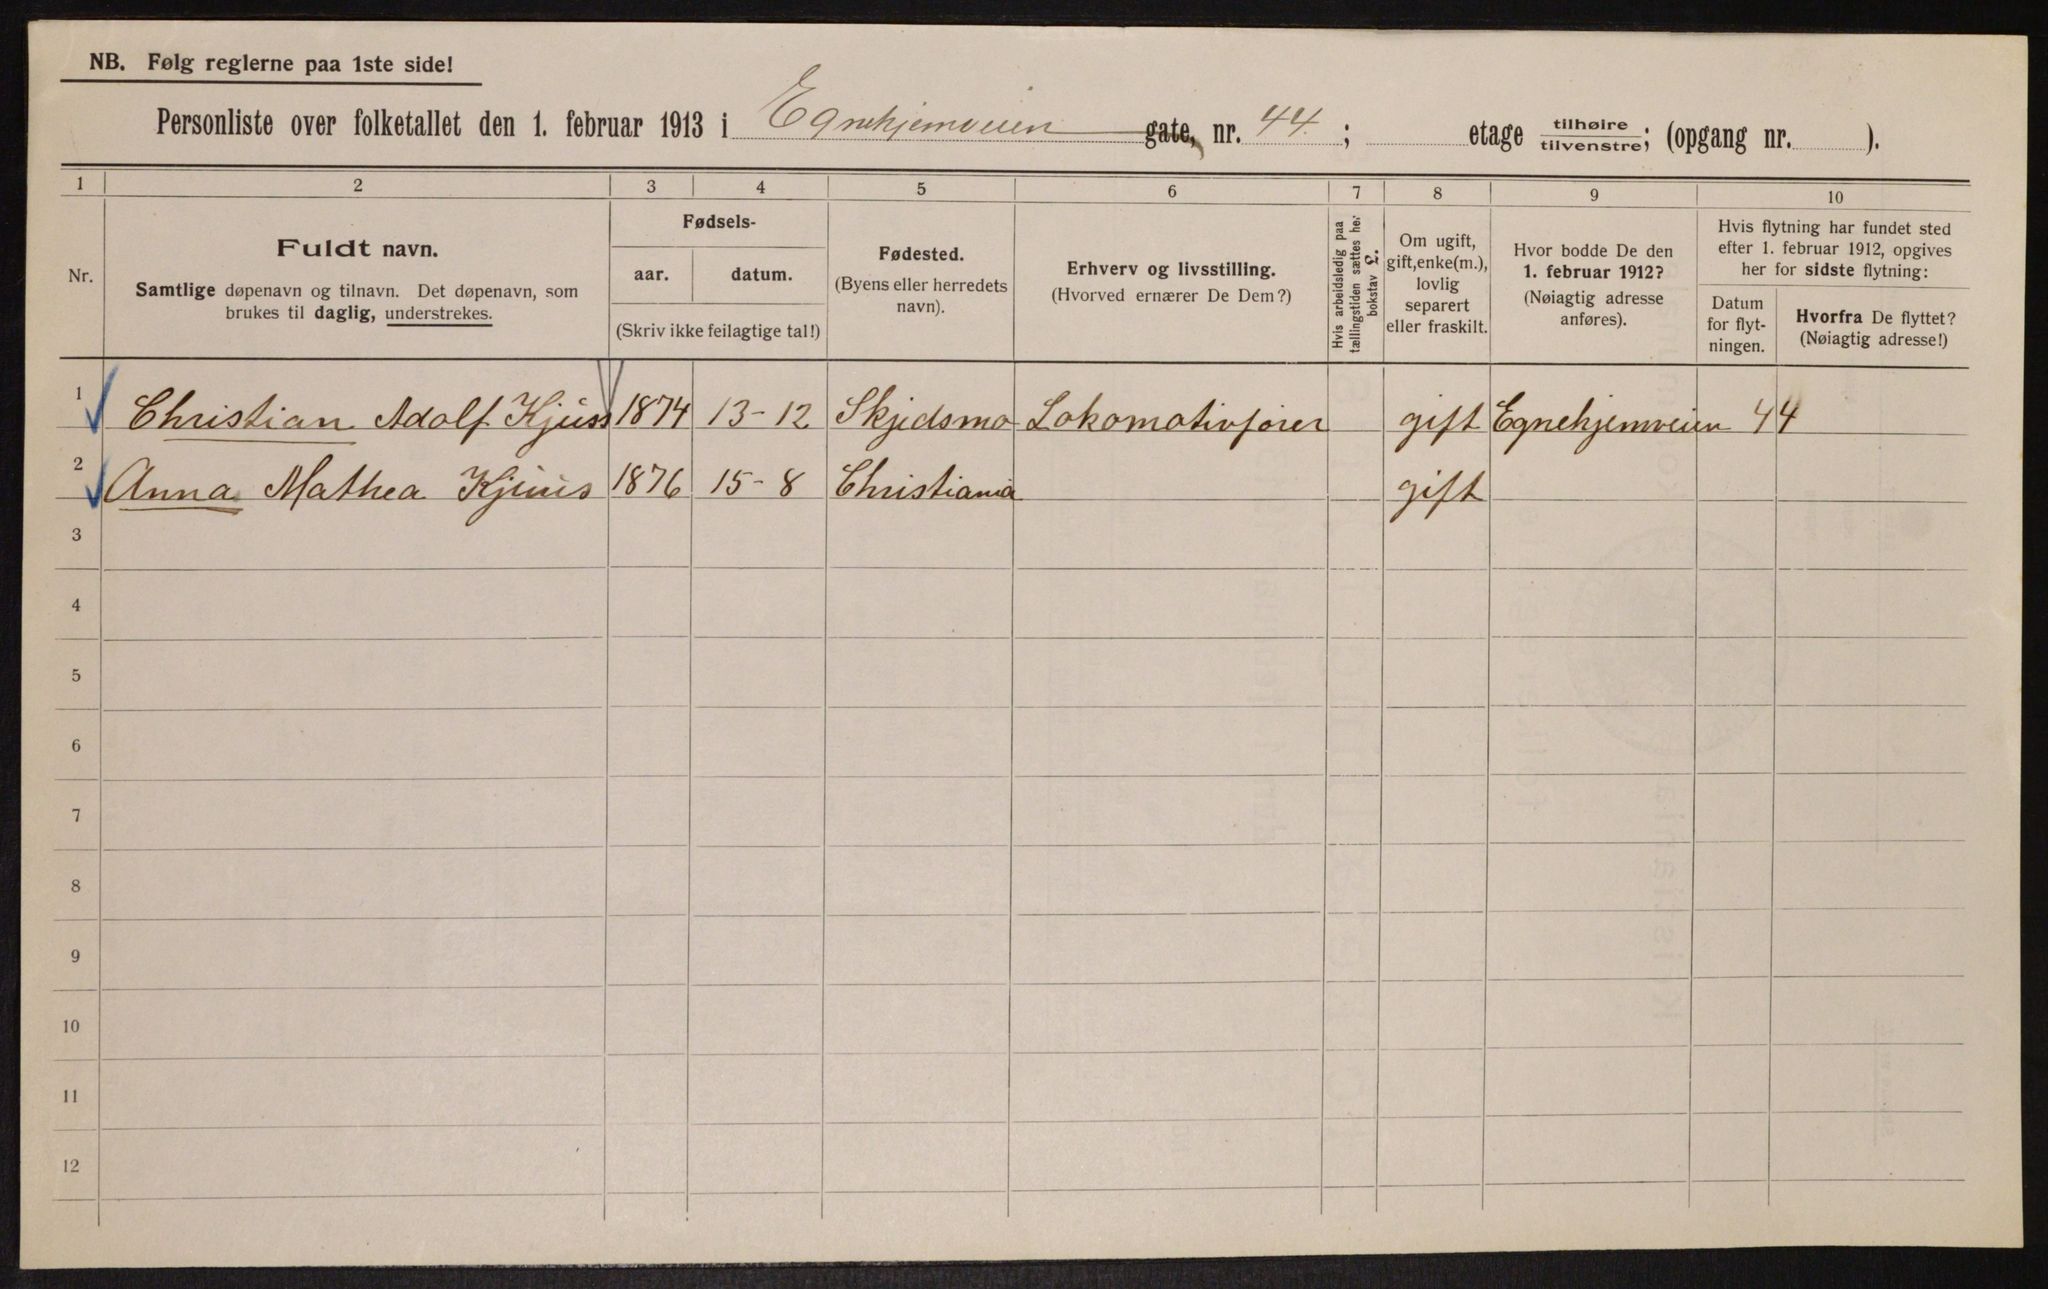 NB. Følg reglerne paa 1ste side!
Personliste over folketallet den 1. februar 1913 i Egnehjemveien gate, nr. 44. ; etage tilhøire tilvenstre ; (opgang nr. ).
1 2 3 4 5 6 7 8 9 10
Nr.
Fuldt navn.
Samtlige døpenavn og tilnavn. Det døpenavn, som
brukes til daglig, understrekes.
Fødsels-
aar. datum.
(Skriv ikke feilagtige tal!)
Fødested.
(Byens eller herredets
navn).
Erhverv og livsstilling.
(Hvorved ernærer De Dem?)
Hvis arbeidsledig paa
tællingstiden sættes her
bokstav L.
Om ugift,
gift, enke(m.),
lovlig
separert
eller fraskilt.
Hvor bodde De den
1. februar 1912?
(Nøiagtig adresse
anføres).
Hvis flytning har fundet sted
efter 1. februar 1912, opgives
her for sidste flytning:
Datum
for flyt-
ningen.
Hvorfra De flyttet?
(Nøiagtig adresse!)
1 Christian Adolf Kjuss 1874 13-12 Skjedsmo Lokomotivfører gift Egnehjemveien 44
2 Anna Mathea Kjuus 1876 15-8 Christiania gift
3
4
5
6
7
8
9
10
11
12